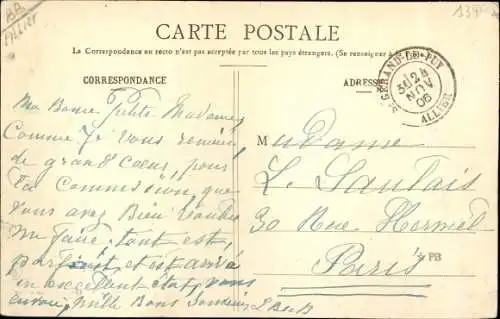 Allier
134
CARTE POSTALE
La Correspondance au recto n'est pas acceptée par tous les pays étrangers. (Se renseigner à la Poste)
CORRESPONDANCE
ADRESSE
ST GERAND-LE-PUY
24
NOV
06
ALLIER
Ma Bonne Petite Madame,
Comme Je vous remercie
de grand Cœur, pour
la Commission, que
vous avez Bien voulu
me faire. tout est,
parfait, et est arrivé
en excellent état, vous
envoie, mille Bons Souvenirs
Madame
L. Lautais
30 Rue Hermel
Paris